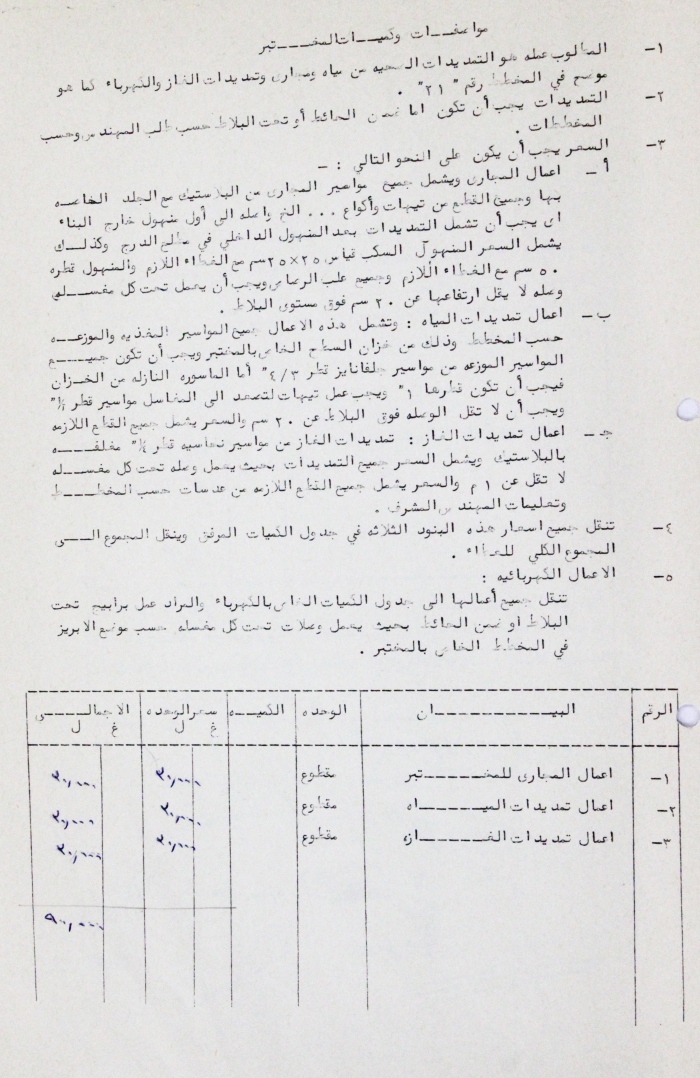 مواصفـــات وكميــات المختـــبر
١- المطلوب عمله هو التمديدات الصحيه من مياه ومجارى وتمديدات الغاز والكهرباء كما هو
موضح في المخطط رقم " ٢١" .
٢- التمديدات يجب أن تكون اما ضمن الحائط أو تحت البلاط حسب طلب المهندس وحسب
المخططات .
٣- السعر يجب أن يكون على النحو التالي : -
أ - اعمال المجارى ويشمل جميع مواسير المجارى من البلاستيك مع الجلد الخاصه
بها وجميع القطع من تيهات وأكواع ... الخ واصله الى أول منهول خارج البناء
اى يجب أن تشمل التمديدات بعد المنهول الداخلي في مطلع الدرج وكذلــك
يشمل السعر المنهول السكب قياس ٢٥×٢٥سم مع الغطاء اللازم والمنهول قطره
٥٠ سم مع الغطاء اللازم وجميع علب الرصاص ويجب أن يعمل تحت كل مغســله
وصله لا يقل ارتفاعها عن ٢٠ سم فوق مستوى البلاط .
ب - اعمال تمديدات المياه : وتشمل هذه الاعمال جميع المواسير المغذيه والموزعــه
حسب المخطط وذلك من خزان السطح الخاص بالمختبر ويجب أن تكون جميـــع
المواسير الموزعه من مواسير جلفانايز قطر ٤/٣" أما الماسوره النازله من الخــزان
فيجب أن تكون قطرها ١" ويجب عمل تيهات لتصعد الى المغاسل مواسير قطر ½"
ويجب أن لا تقل الوصله فوق البلاط عن ٢٠ سم والسعر يشمل جميع القطع اللازمه
جـ - اعمال تمديدات الغاز : تمديدات الغاز من مواسير نحاسيه قطر ¼" مغلفــه
بالبلاستيك ويشمل السعر جميع التمديدات بحيث يعمل وصله تحت كل مغســله
لا تقل عن ١م والسعر يشمل جميع القطع اللازمه من عدسات حسب المخطــط
وتعليمات المهندس المشرف .
٤- تنقل جميع اسعار هذه البنود الثلاثه في جدول الكميات المرفق وينقل المجموع الــى
المجموع الكلي للعطاء .
٥- الاعمال الكهربائيه :
تنقل جميع أعمالها الى جدول الكميات الخاص بالكهرباء والمراد عمل برابيج تحت
البلاط او ضمن الحائط بحيث يعمل وصلات تحت كل مغسله حسب موضع الابريز
في المخطط الخاص بالمختبر .
الرقم البيـــــــان الوحده الكميــه سعر الوحده الاجمالـــي
غ ل غ ل
١- اعمال المجارى للمختـــبر مقطوع ٣٠,٠٠٠ ٣٠,٠٠٠
٢- اعمال تمديدات الميــــاه مقطوع ٣٠,٠٠٠ ٣٠,٠٠٠
٣- اعمال تمديدات الغـــــازه مقطوع ٣٠,٠٠٠ ٣٠,٠٠٠
٩٠,٠٠٠